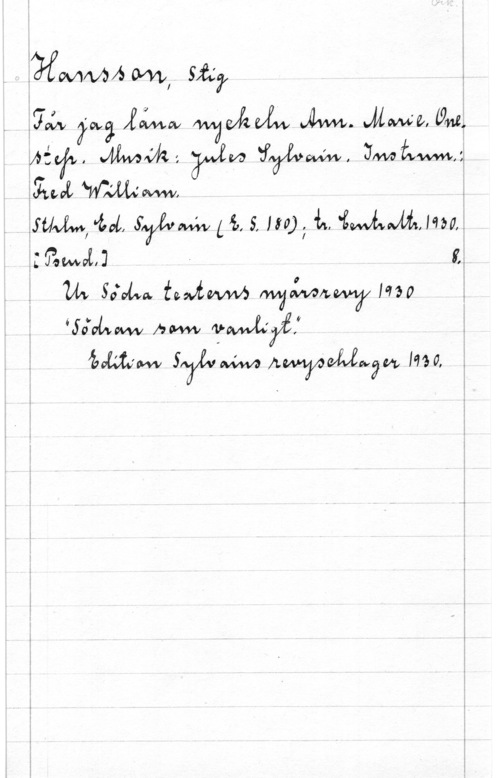 Hansson, Stig
Får jag låna nyckeln Ann-Marie. One-
step. Musik: Jules Sylvain. Instrum.:
Fred William.
Sthlm, Ed. Sylvain (E. S. 180); tr. Centraltr. 1930.
[Pseud.] 8.
Ur Södra teaterns nyårsrevy 1930
"Södran som vanligt."
Edition Sylvains revyschlager 1930.